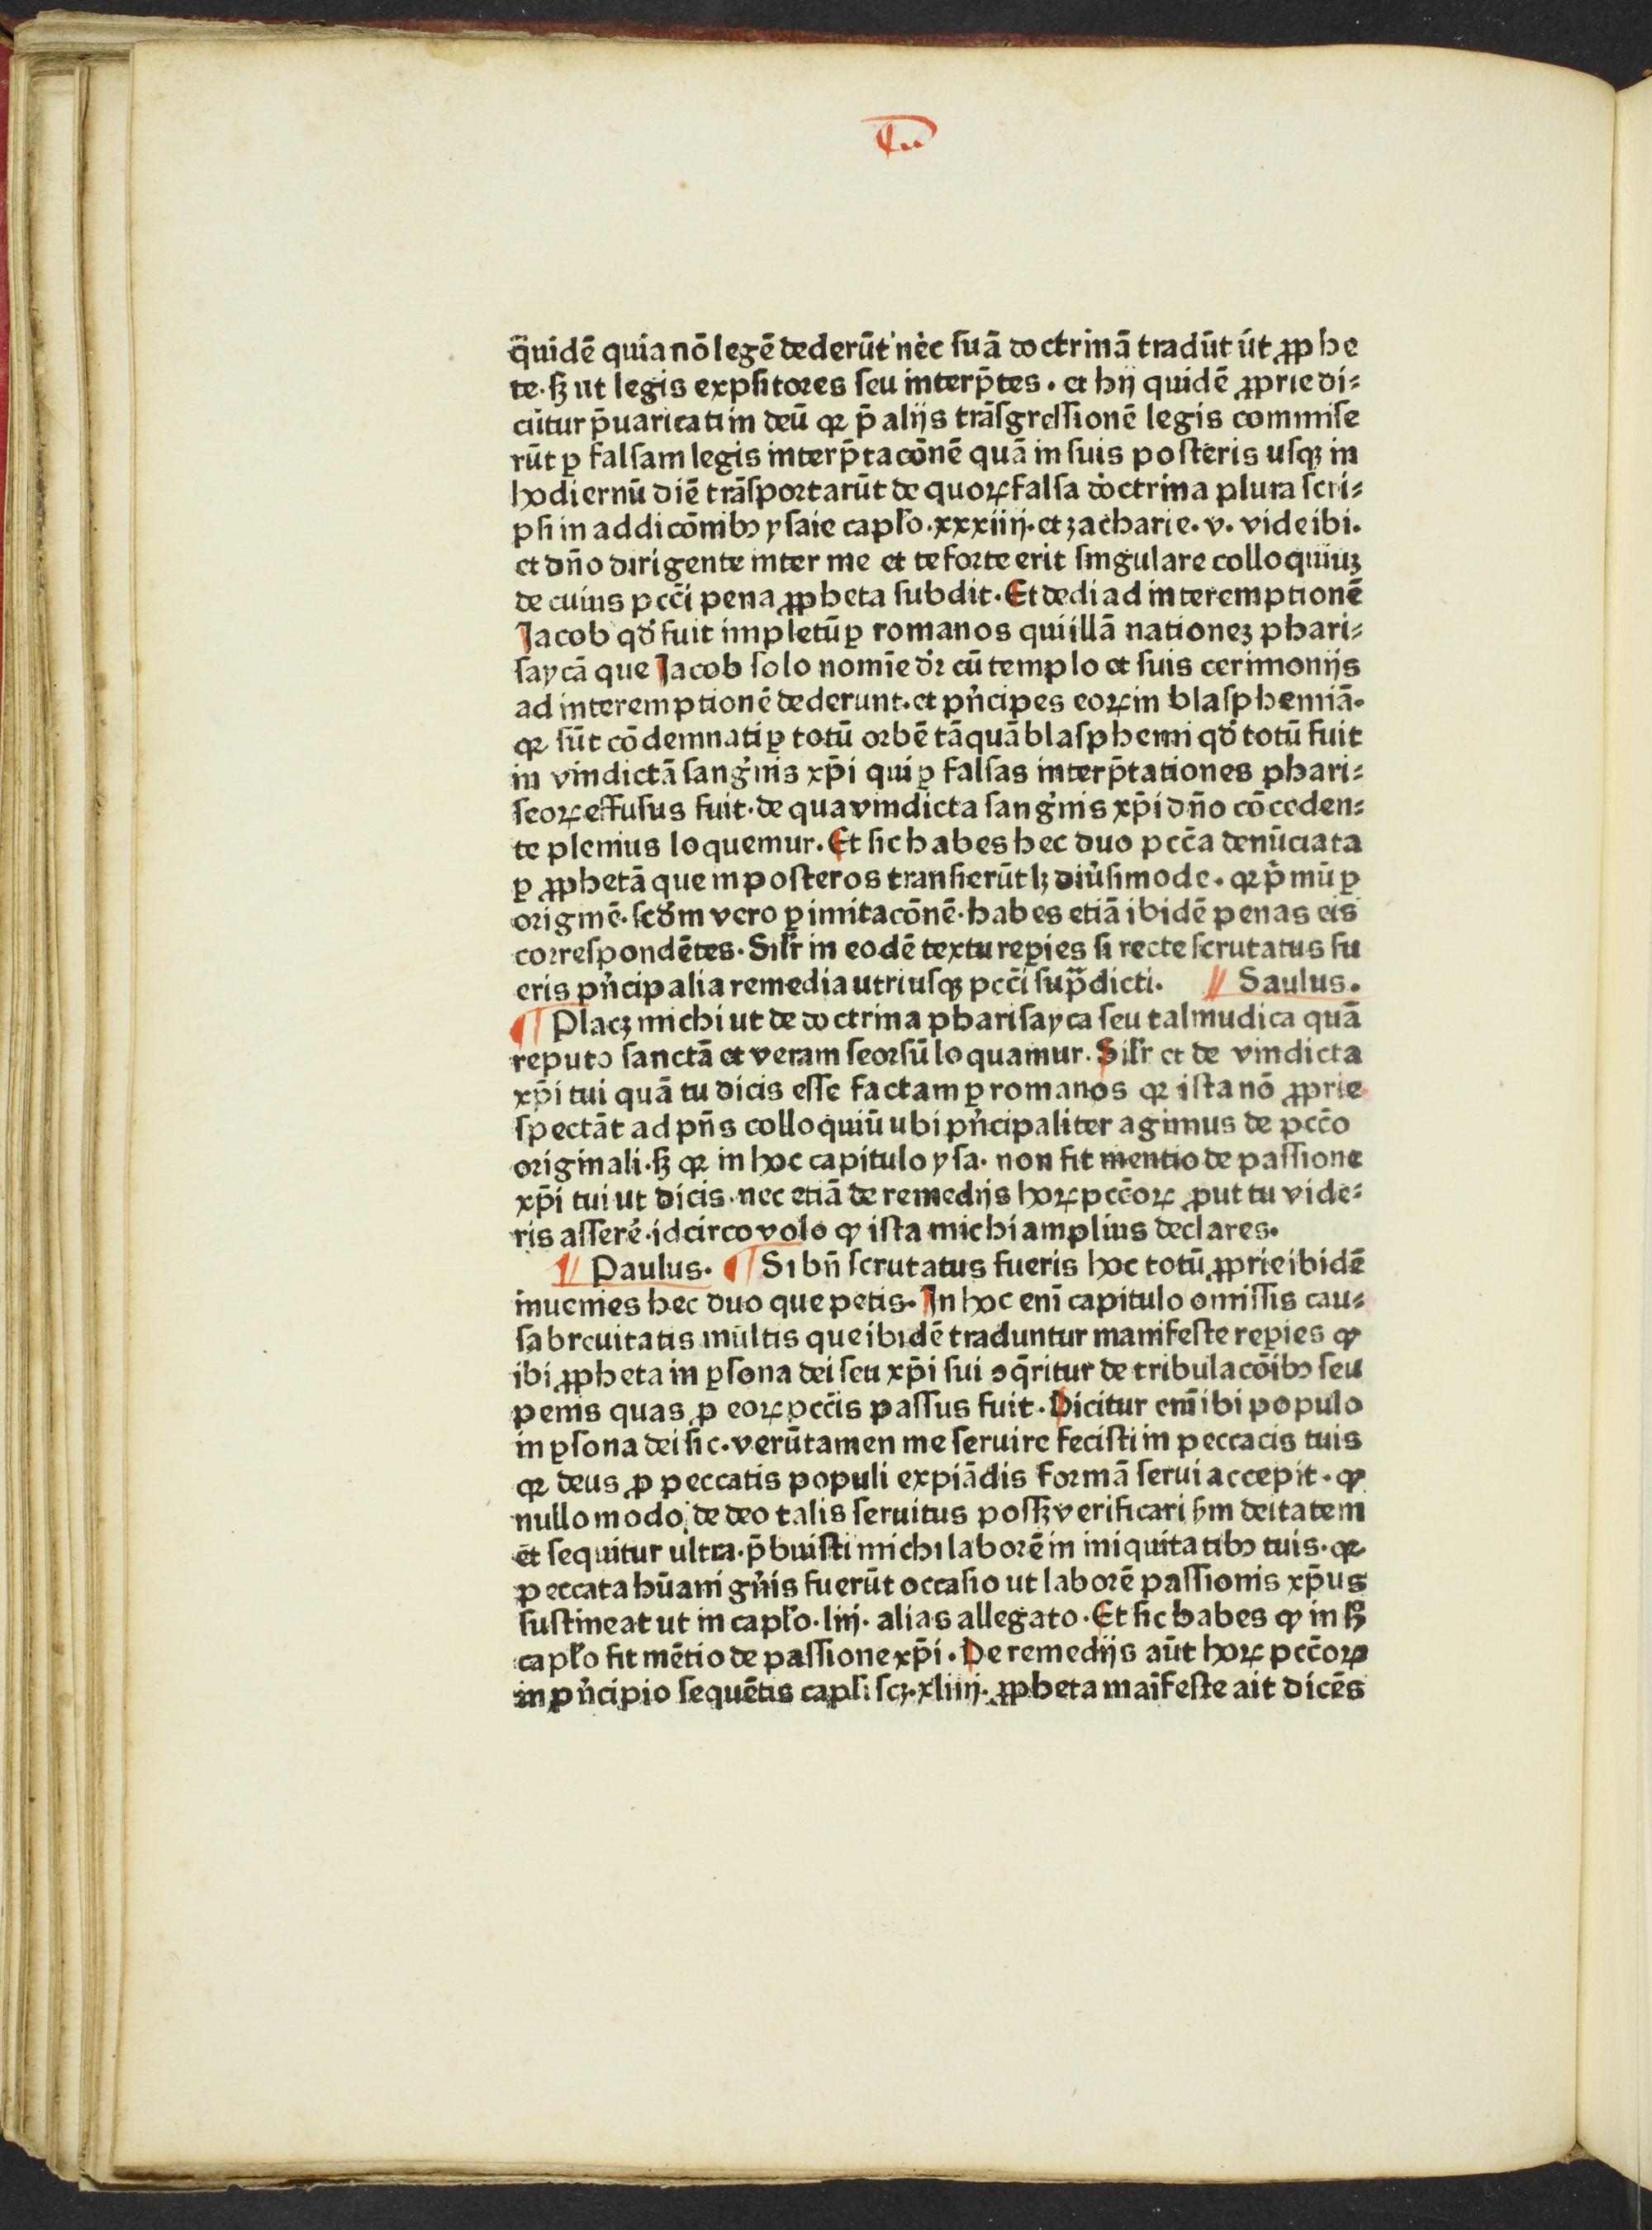 q̄uidē quia nō legē dederūt nec suā doctrinā tradūt ut ꝓphe
te · sꝫ ut legis expsitores seu interp̄tes · et hij quidē ꝓprie di⸗
cūtur p̄uaricati in deū qꝛ p̄ alijs trāsgressionē legis commise
rūt ꝑ falsam legis interp̄tacōnē quā in suis posteris usqꝫ in
hodiernū diē trāsportarūt de quoꝝ falsa doctrina plura scri⸗
psi in addicōnibꝰ ysaie cap̄lo · xxxiiij · et zacharie · v · vide ibi ·
et dn̄o dirigente inter me et te forte erit singulare colloquiuꝫ
de cuius pcc̄i pena ꝓpheta subdit · Et dedi ad interemptionē
Jacob qd̄ fuit impletū ꝑ romanos qui illā nationeꝫ phari⸗
saycā que Jacob solo nomīe dr̄ cū templo et suis cerimonijs
ad interemptionē dederunt · et pn̄cipes eoꝝ in blasphemiā ·
qꝛ sūt cōdemnati ꝑ totū orbē tāquā blasphemi qd̄ totū fuit
in vindictā sangīnis xp̄i qui ꝑ falsas interp̄tationes phari⸗
seoꝝ effusus fuit · de qua vindicta sangīnis xp̄i dn̄o cōceden⸗
te plenius loquemur · Et sic habes hec duo pcc̄a denūciata
ꝑ ꝓphetā que in posteros transierūt lꝫ diūsimode · qꝛ p̄mū ꝑ
originē · scd̄m vero ꝑ imitacōnē · habes etiā ibidē penas eis
correspondētes · Silr̄ in eodē textu reꝑies si recte scrutatus fu
eris pn̄cipalia remedia utriusqꝫ pcc̄i sup̄dicti · Saulus ·
¶ Placꝫ michi ut de doctrina pharisayca seu talmudica quā
reputo sanctā et veram seorsū loquamur · Silr̄ et de vindicta
xp̄i tui quā tu dicis esse factam ꝑ romanos qꝛ ista nō ꝓprie
spectāt ad pn̄s colloquiū ubi pn̄cipaliter agimus de pcc̄o
originali · sꝫ qꝛ in hoc capitulo ysa · non fit mentio de passione
xp̄i tui ut dicis · nec etiā de remedijs hoꝝ pcc̄oꝝ ꝓut tu vide⸗
ris asserē · idcirco volo ꝙ ista michi amplius declares ·
Paulus · ¶ Si bn̄ scrutatus fueris hoc totū ꝓprie ibidē
inuenies hec duo que petis · In hoc enī capitulo omissis cau⸗
sa breuitatis multis que ibidē traduntur manifeste reꝑies ꝙ
ibi ꝓpheta in ꝑsona dei seu xp̄i sui ꝯq̄ritur de tribulacōibꝰ seu
penis quas ꝓ eoꝝ pcc̄is passus fuit · Dicitur em̄ ibi populo
in ꝑsona dei sic · verūtamen me seruire fecisti in peccatis tuis
qꝛ deus ꝓ peccatis populi expiādis formā serui accepit · ꝙ
nullo modo de deo talis seruitus possꝫ verificari sm̄ deitatem
et sequitur ultra · p̄buisti michi laborē in iniquitatibꝰ tuis · qꝛ
peccata hūani gn̄is fuerūt occasio ut laborē passionis xp̄us
sustineat ut in cap̄lo · liij · alias allegato · Et sic habes ꝙ in
cap̄lo fit mētio de passione xp̄i · De remedijs aūt hoꝝ pcc̄oꝝ
in pn̄cipio sequētis cap̄li scꝫ · xliiij · ꝓpheta maīfeste ait dicēs